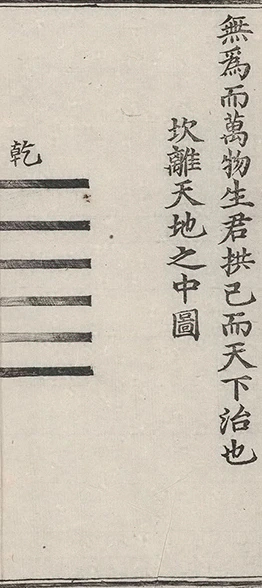 無為而萬物生君拱己而天下治也
坎離天地之中圖
乾